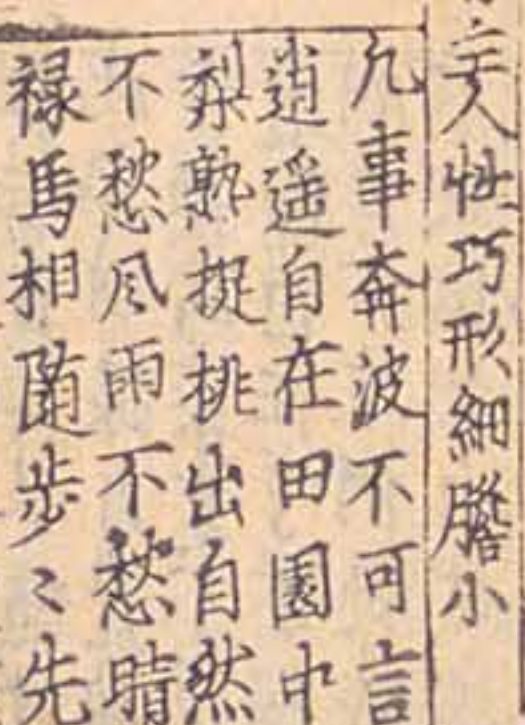 主人性巧形細膽小
凡事奔波不可言
逍遥自在田園中
梨熟捉桃出自然
不愁风雨不愁晴
禄馬相随步〻先